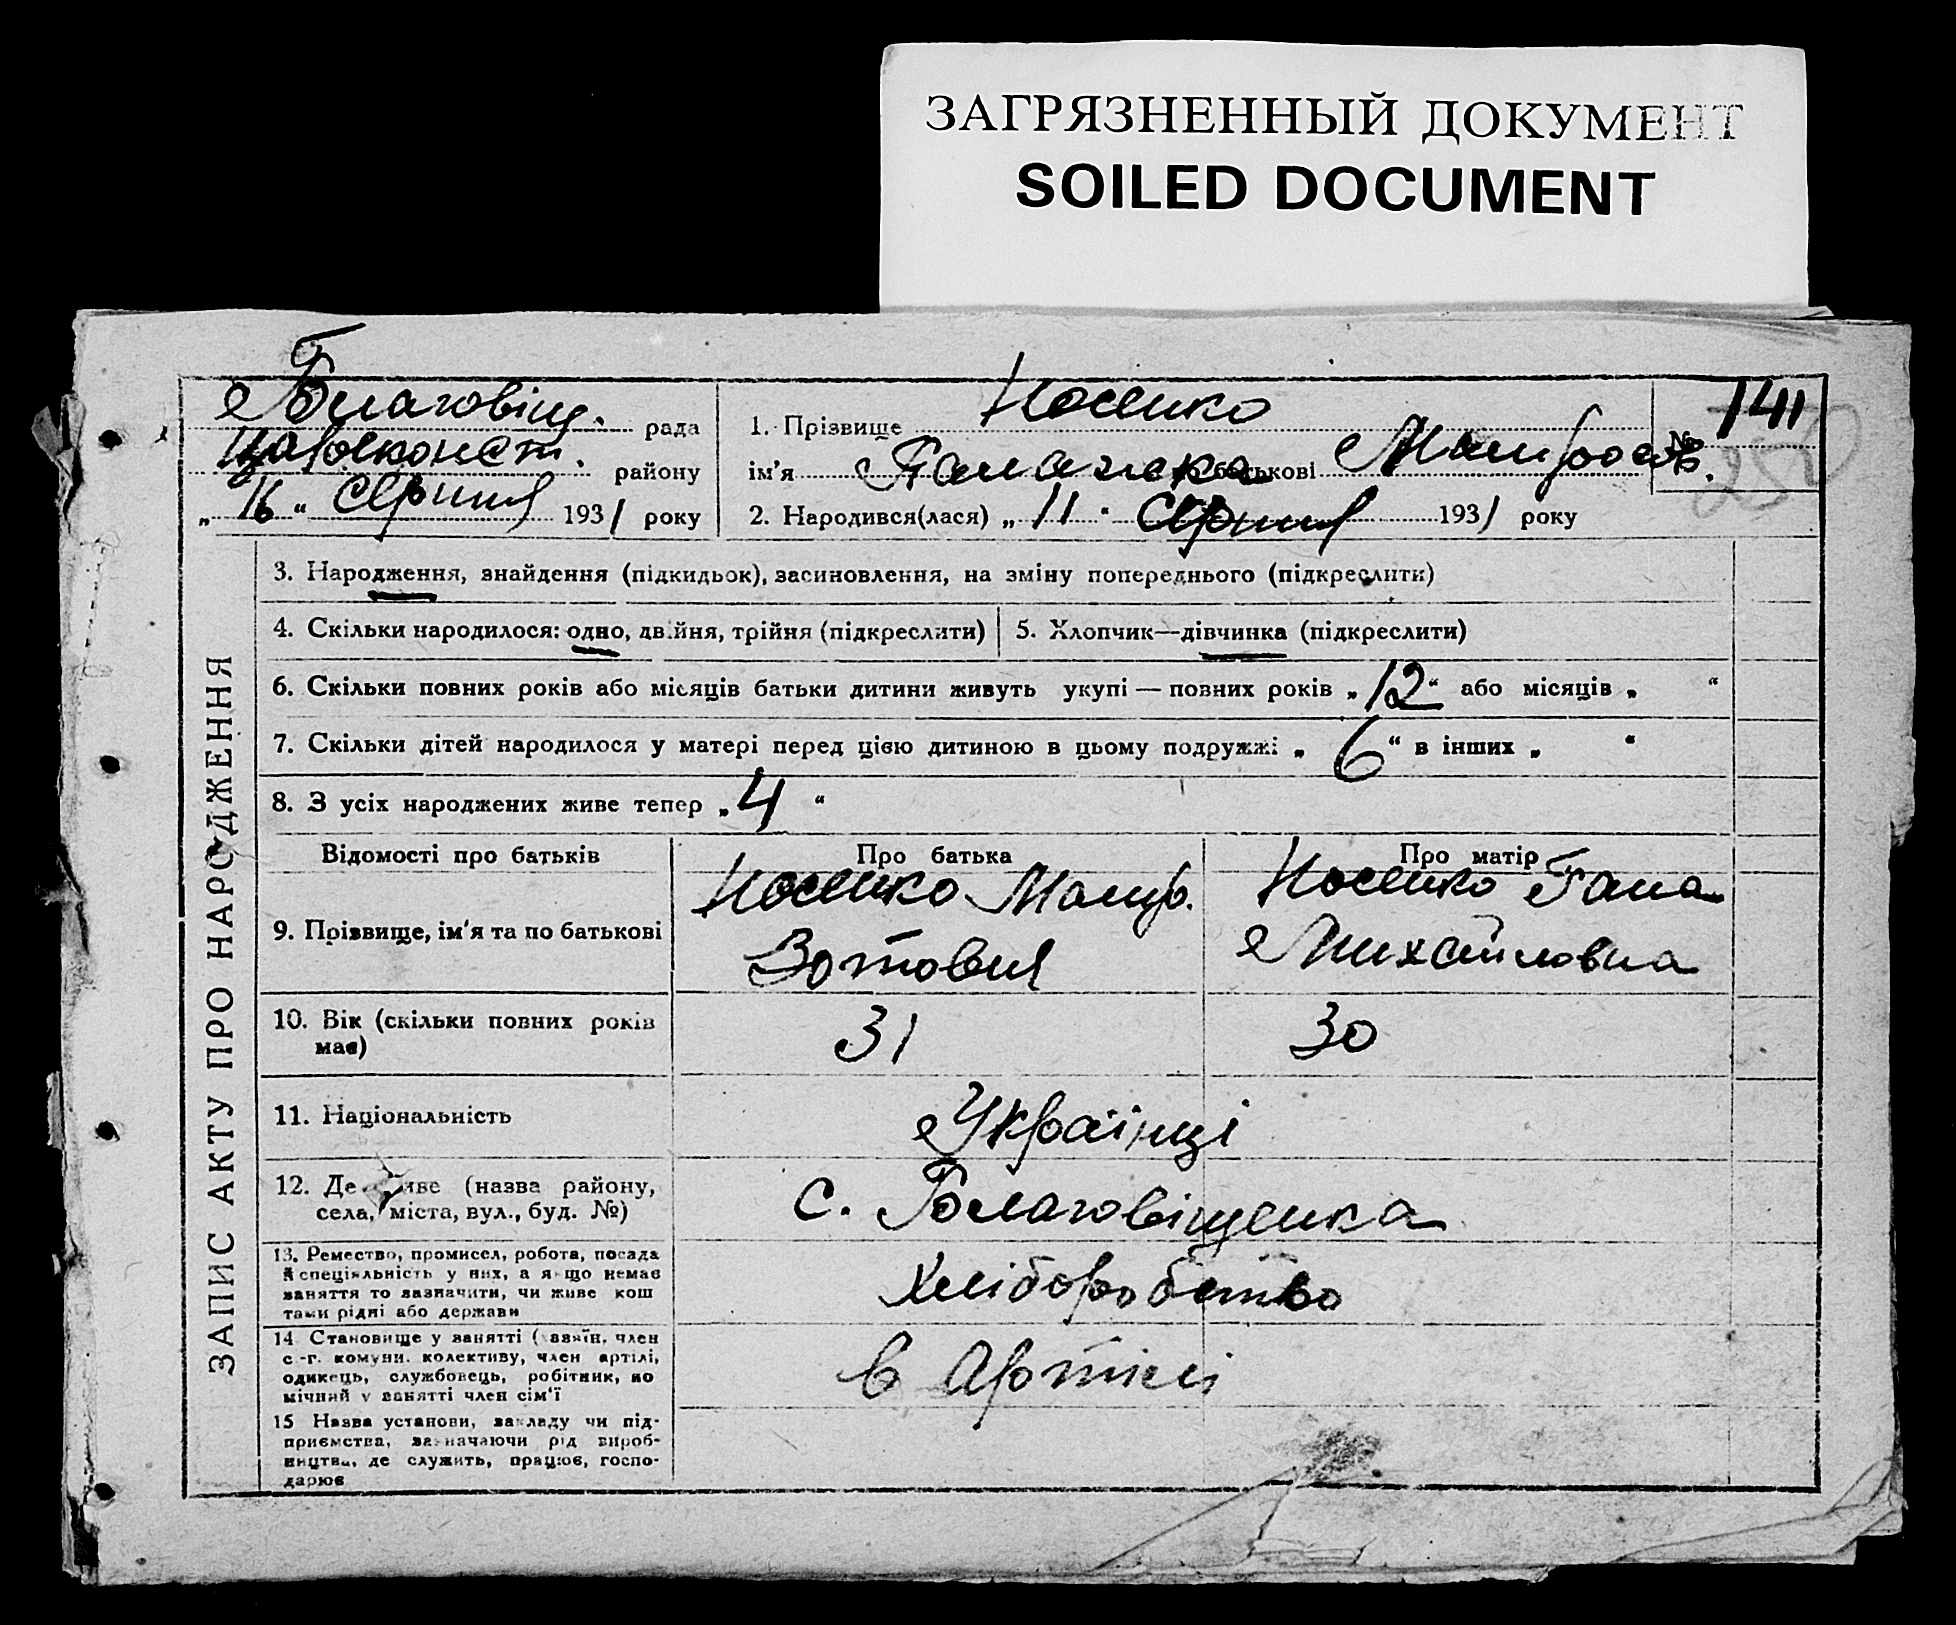 ЗАГРЯЗНЕННЫЙ ДОКУМЕНТ
SOILED DOCUMENT
Благовіщ. рада
Царекконст. району
„16“ Серпня 1931 року
1. Прізвище Носенко
ім'я Палажка по батькові Митроф.
2. Народився(лася) „11“ Серпня 1931 року
№ 141
ЗАПИС АКТУ ПРО НАРОДЖЕННЯ
3. Народження, знайдення (підкидьок), засиновлення, на зміну попереднього (підкреслити)
4. Скільки народилося: одно, двійня, трійня (підкреслити)
5. Хлопчик—дівчинка (підкреслити)
6. Скільки повних років або місяців батьки дитини живуть укупі — повних років „12“ або місяців „ “
7. Скільки дітей народилося у матері перед цією дитиною в цьому подружжі „6“ в інших „ “
8. З усіх народжених живе тепер „4“
Відомості про батьків
Про батька
Про матір
9. Прізвище, ім'я та по батькові
Носенко
Зотович
Носенко Гана
Михайловна
10. Вік (скільки повних років
має)
31
30
11. Національність
Українці
12. Де живе (назва району,
села, міста, вул., буд. №)
с. Благовіщенка
13. Ремество, промисел, робота, посада
й спеціяльність у них, а якщо немає
заняття то зазначити, чи живе кош
тами рідні або держави
Хліборобство
14. Становище у занятті (хазяїн, член
с.-г. комуни. колективу, член артілі,
одинець, службовець, робітник, по
мічний у занятті член сім'ї
в Артілі
15 Назва установи, закладу чи під-
приємства, зазначаючи рід вироб-
ництва, де служить, працює, госпо-
дарює